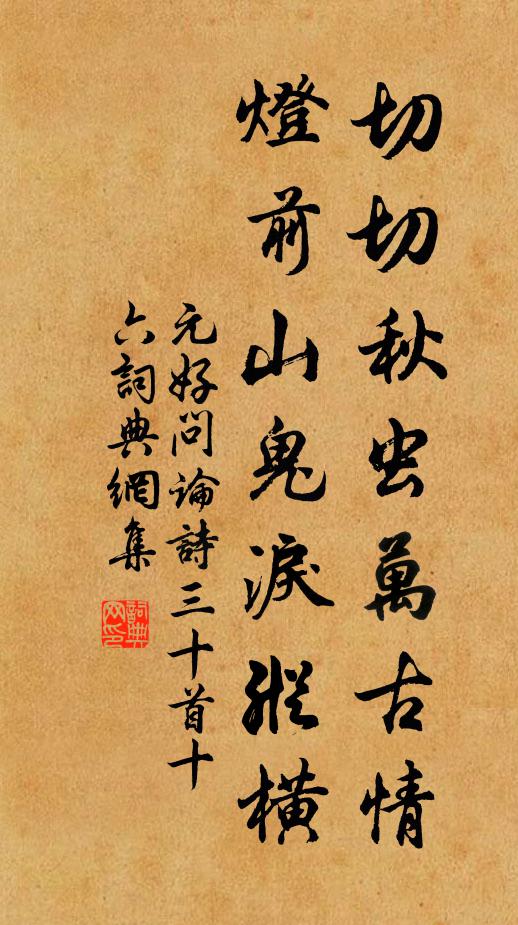 切切秋虫萬古情
燈前山鬼淚縱橫
元好問論詩三十首十
六詞典網集
詞典
网印